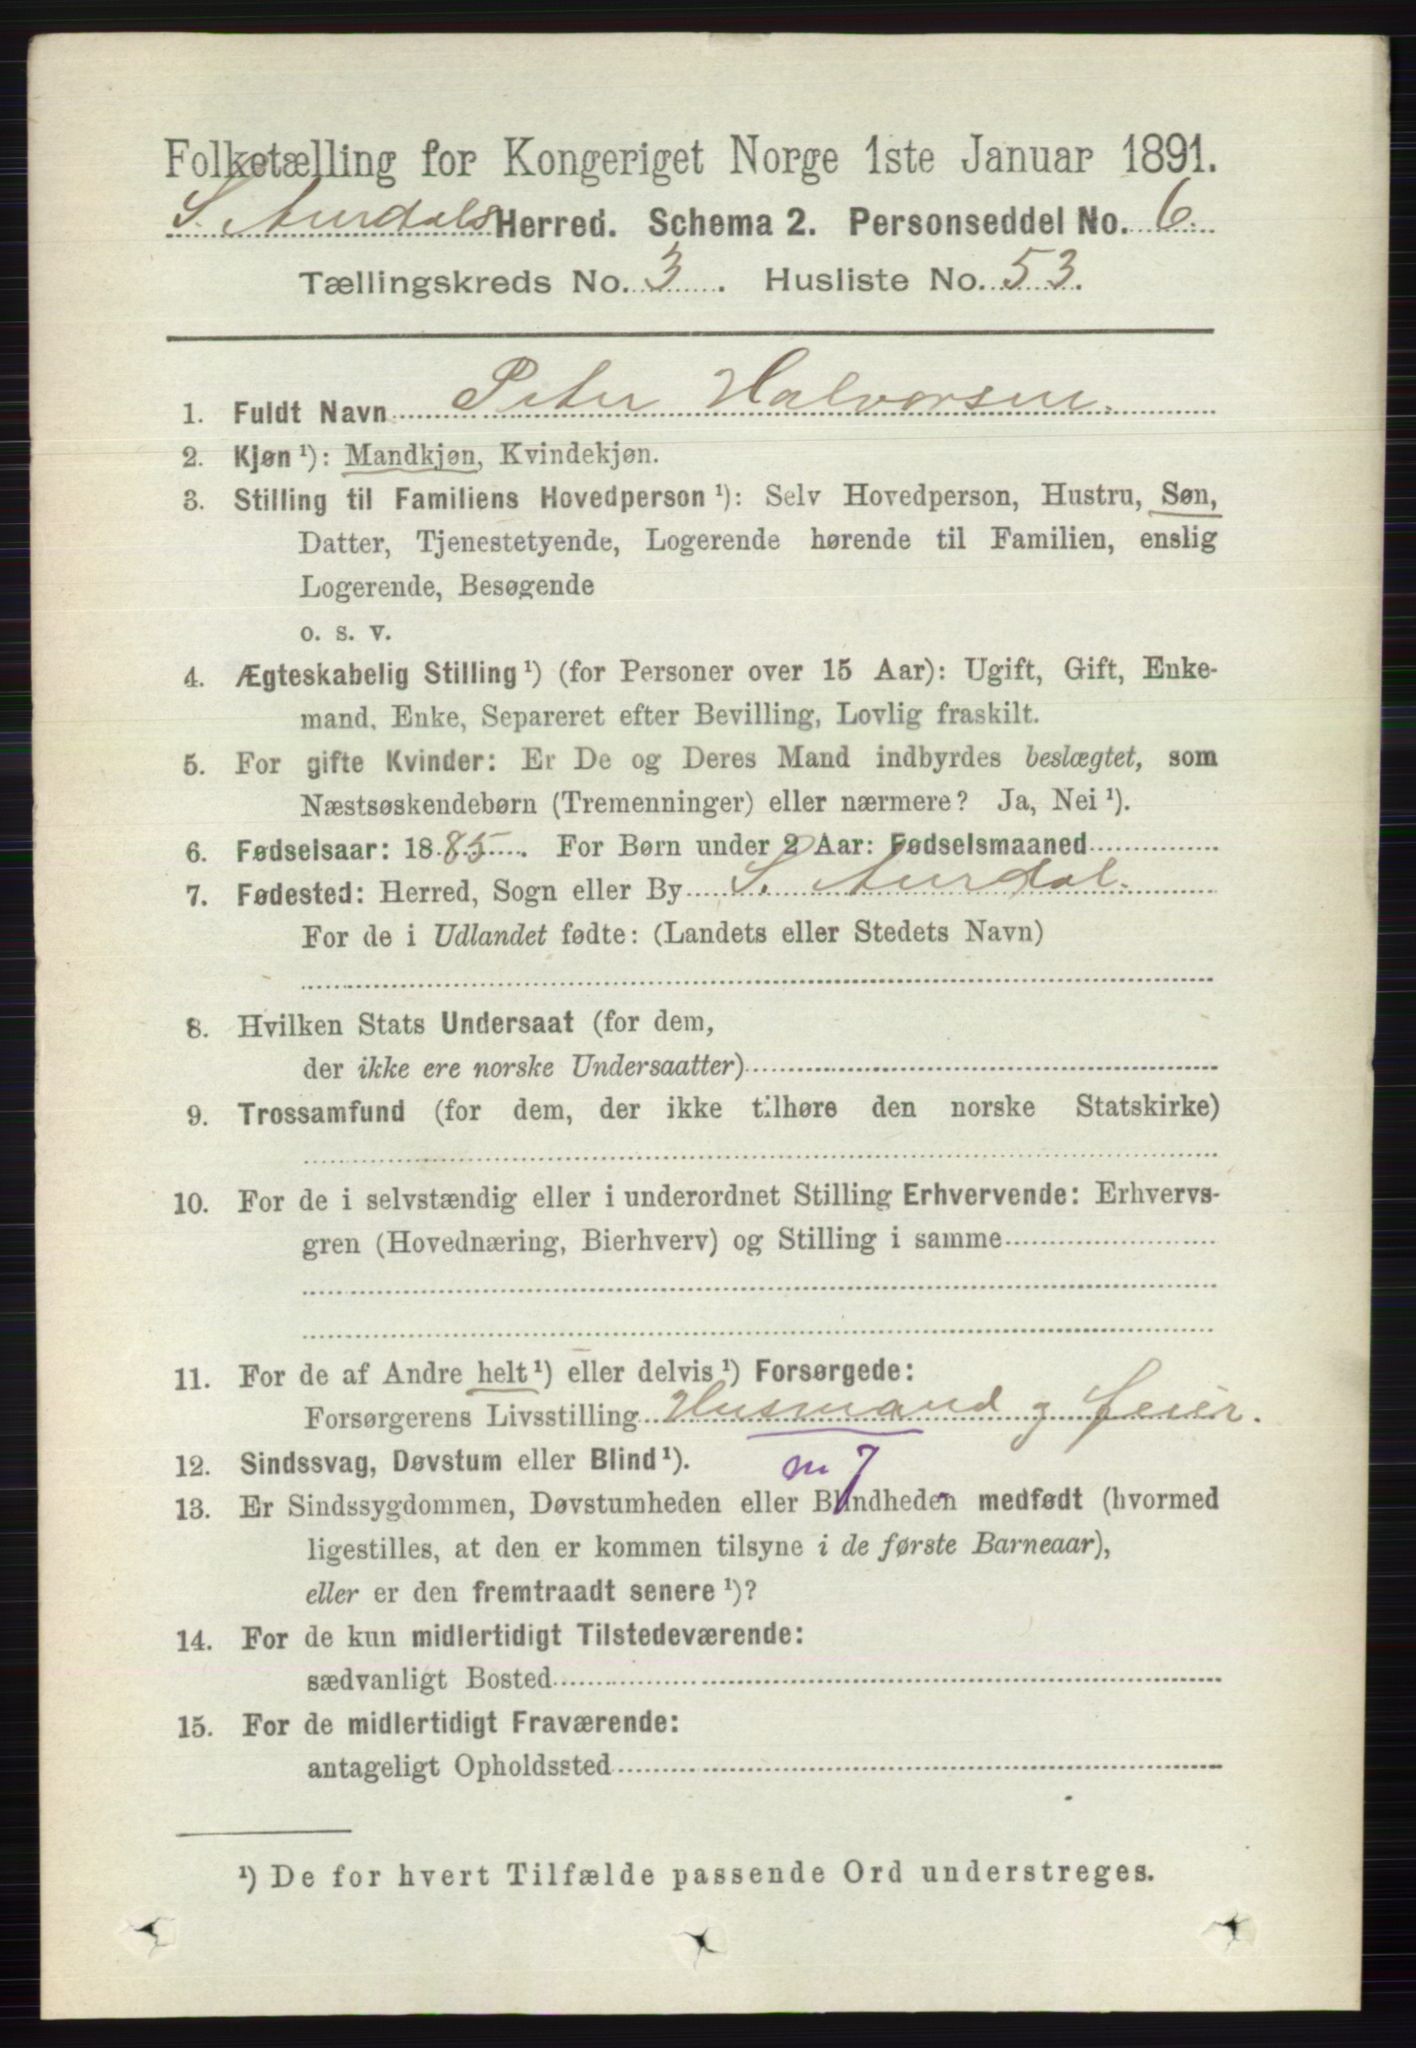 Folketælling for Kongeriget Norge 1ste Januar 1891.
S. Aurdals Herred. Schema 2. Personseddel No. 6.
Tællingskreds No. 3. Husliste No. 53.
1. Fuldt Navn Peter Halvorsen.
2. Kjøn¹): Mandkjøn, Kvindekjøn.
3. Stilling til Familiens Hovedperson¹): Selv Hovedperson, Hustru, Søn,
Datter, Tjenestetyende, Logerende hørende til Familien, enslig
Logerende, Besøgende
o. s. v.
4. Ægteskabelig Stilling¹) (for Personer over 15 Aar): Ugift, Gift, Enke-
mand, Enke, Separeret efter Bevilling, Lovlig fraskilt.
5. For gifte Kvinder: Er De og Deres Mand indbyrdes beslægtet, som
Næstsøskendebørn (Tremenninger) eller nærmere? Ja, Nei¹).
6. Fødselsaar: 1885. For Børn under 2 Aar: Fødselsmaaned
7. Fødested: Herred, Sogn eller By S. Aurdal.
For de i Udlandet fødte: (Landets eller Stedets Navn)
8. Hvilken Stats Undersaat (for dem,
der ikke ere norske Undersaatter)
9. Trossamfund (for dem, der ikke tilhøre den norske Statskirke)
10. For de i selvstændig eller i underordnet Stilling Erhvervende: Erhvervs-
gren (Hovednæring, Bierhverv) og Stilling i samme
11. For de af Andre helt¹) eller delvis¹) Forsørgede:
Forsørgerens Livsstilling Husmand g feier.
12. Sindssvag, Døvstum eller Blind¹). m 7
13. Er Sindssygdommen, Døvstumheden eller Blindheden medfødt (hvormed
ligestilles, at den er kommen tilsyne i de første Barneaar),
eller er den fremtraadt senere¹)?
14. For de kun midlertidigt Tilstedeværende:
sædvanligt Bosted
15. For de midlertidigt Fraværende:
antageligt Opholdssted
¹) De for hvert Tilfælde passende Ord understreges.